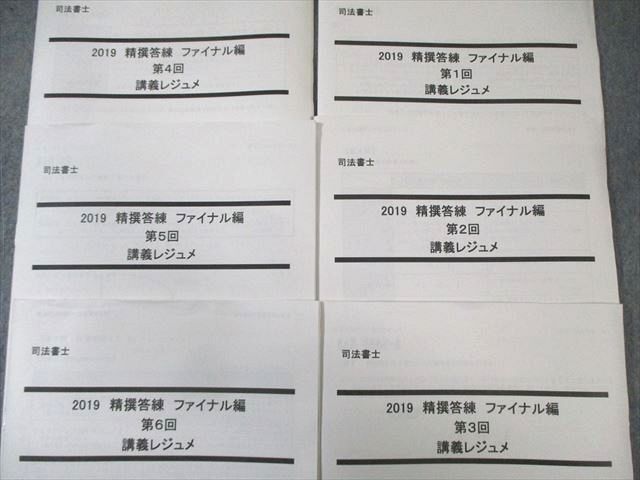 司法書士
2019 精撰答練 ファイナル編
第4回
講義レジュメ
司法書士
2019 精撰答練 ファイナル編
第1回
講義レジュメ
司法書士
2019 精撰答練 ファイナル編
第5回
講義レジュメ
司法書士
2019 精撰答練 ファイナル編
第2回
講義レジュメ
司法書士
2019 精撰答練 ファイナル編
第6回
講義レジュメ
司法書士
2019 精撰答練 ファイナル編
第3回
講義レジュメ